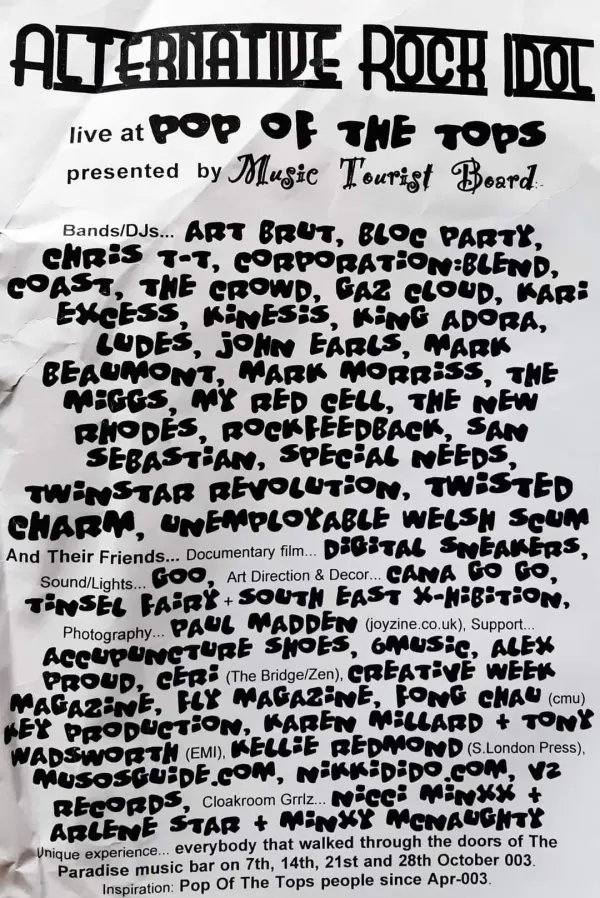 ALTERNATIVE ROCK IDOL
live at POP OF THE TOPS
presented by Music Tourist Board..
Bands/DJs... ART BRUT, BLOC PARTY,
CHRiS T-T, CORPORATiON:BLEND,
COAST, THE CROWD, GAZ CLOUD, KARi
EXCESS, KiNESiS, KiNG ADORA,
LUDES, JOHN EARLS, MARK
BEAUMONT, MARK MORRiSS, THE
MiGGS, MY RED CELL, THE NEW
RHODES, ROCKFEEDBACK, SAN
SEBASTiAN, SPECiAL NEEDS,
TWiNSTAR REVOLUTiON, TWiSTED
CHARM, UNEMPLOYABLE WELSH SCUM
And Their Friends... Documentary film... DiGiTAL SNEAKERS,
Sound/Lights... GOO, Art Direction & Decor... CANA GO GO,
TiNSEL FAiRY + SOUTH EAST X-HiBiTiON,
Photography... PAUL MADDEN (joyzine.co.uk), Support...
ACCUPUNCTURE SHOES, 6MUSiC, ALEX
PROUD, CERi (The Bridge/Zen), CREATiVE WEEK
MAGAZiNE, FLY MAGAZiNE, FONG CHAU (cmu)
KEY PRODUCTiON, KAREN MiLLARD + TONY
WADSWORTH (EMI), KELLiE REDMOND (S.London Press),
MUSOSGUiDE.COM, NiKKiDiDO.COM, V2
RECORDS, Cloakroom Grrlz... NiCCi MiNXX +
ARLENE STAR + MiNXY MCNAUGHTY
Unique experience... everybody that walked through the doors of The
Paradise music bar on 7th, 14th, 21st and 28th October 003.
Inspiration: Pop Of The Tops people since Apr-003.